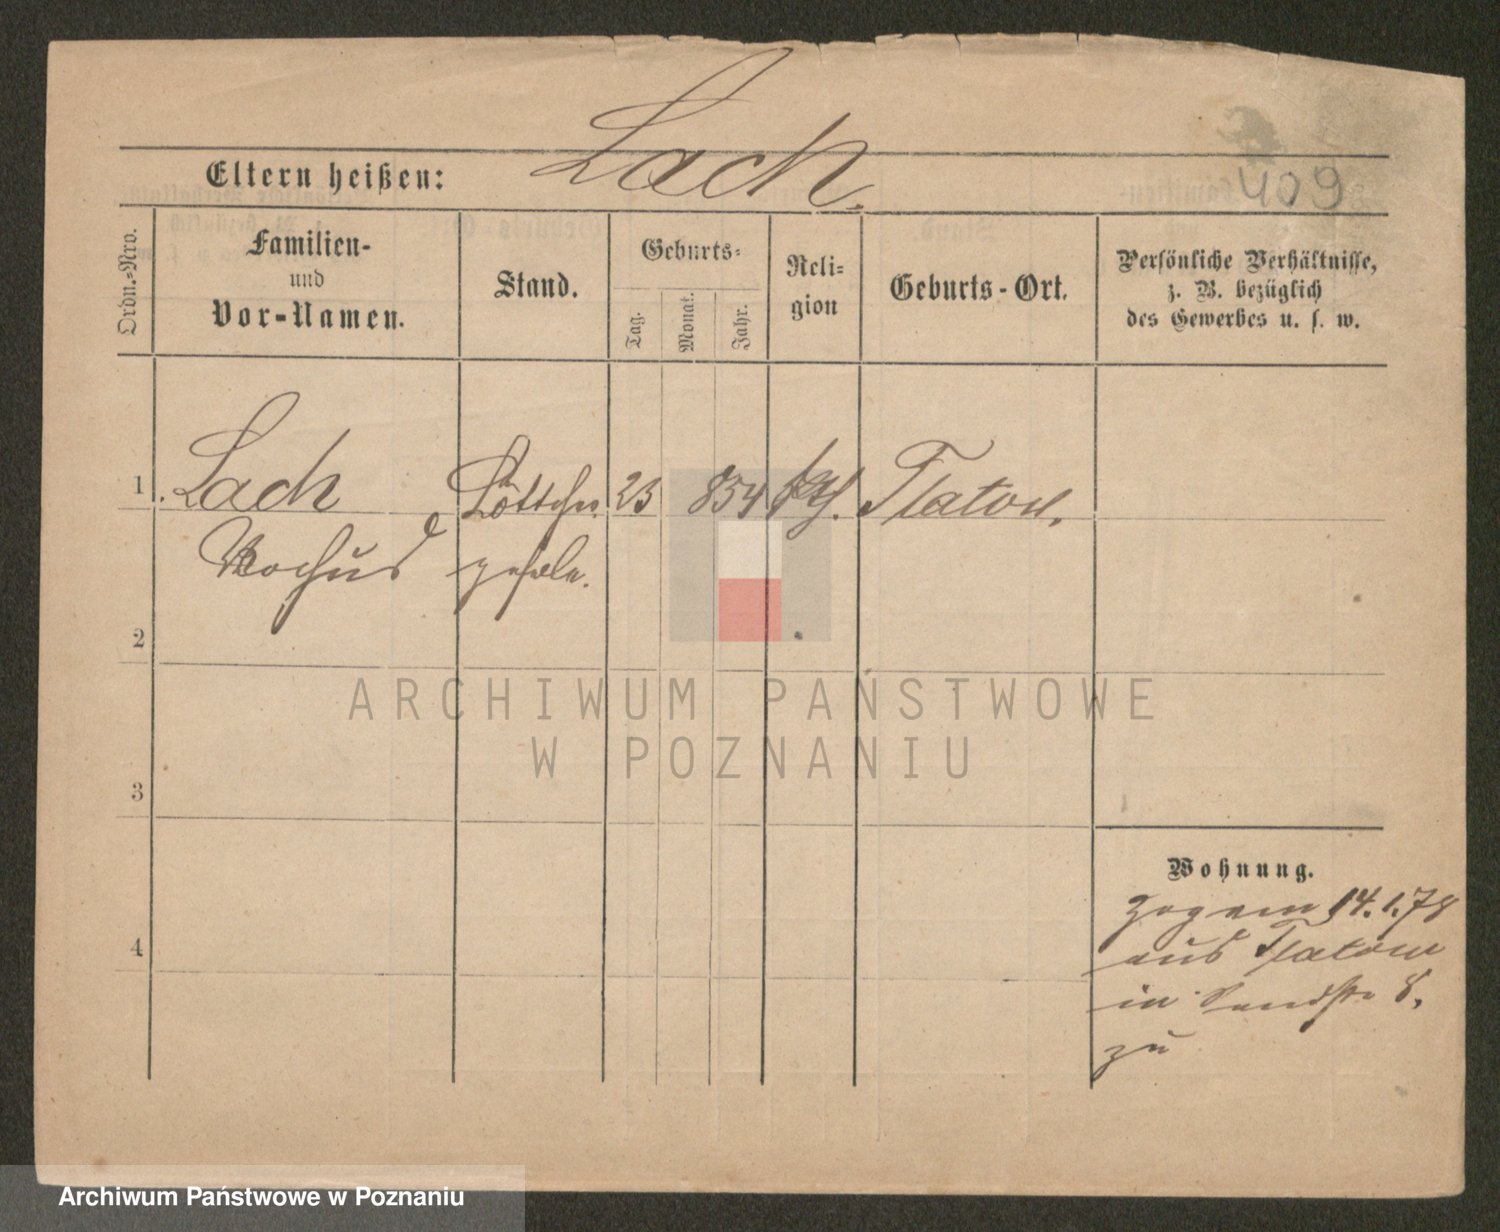 Lach.
Eltern heißen:
409
Ordn.=Nro.
Familien-
und
Vor-Namen.
Stand.
Geburts=
Tag.
Monat.
Jahr.
Reli=
gion
Geburts-Ort.
Persönliche Verhältnisse,
z. B. bezüglich
des Gewerbes u. s. w.
1
Lach Böttcher 23 854 kth. Flatow.
Rochus geselle.
2
ARCHIWUM PAŃSTWOWE
W POZNANIU
3
Wohnung.
zog am 14.1.78
aus Flatow
in Sandstr 8,
zu
4
Archiwum Państwowe w Poznaniu